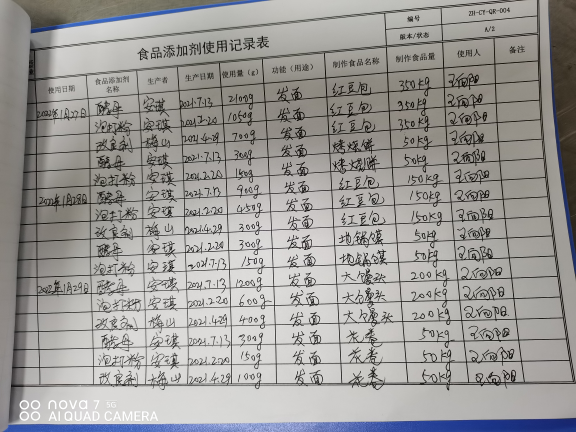 编号 ZH-CY-QR-004
食品添加剂使用记录表 版本/状态 A/2
使用日期 食品添加剂名称 生产者 生产日期 使用量(g) 功能(用途) 制作食品名称 制作食品量 使用人 备注
2022年1月27日 酵母 安琪 2021.7.13 2100g 发面 红豆包 350kg 王向阳
泡打粉 安琪 2021.2.20 1050g 发面 红豆包 350kg 王向阳
改良剂 梅山 2021.4.29 700g 发面 红豆包 350kg 王向阳
酵母 安琪 2021.7.13 300g 发面 烤烧饼 50kg 王向阳
泡打粉 安琪 2021.2.20 150g 发面 烤烧饼 50kg 王向阳
2022年1月28日 酵母 安琪 2021.7.13 900g 发面 红豆包 150kg 王向阳
泡打粉 安琪 2021.2.20 450g 发面 红豆包 150kg 王向阳
改良剂 梅山 2021.4.29 300g 发面 红豆包 150kg 王向阳
酵母 安琪 2021.2.20 300g 发面 地锅馍 50kg 王向阳
泡打粉 安琪 2021.7.13 150g 发面 地锅馍 50kg 王向阳
2022年1月29日 酵母 安琪 2021.7.13 1200g 发面 大馒头 200kg 王向阳
泡打粉 安琪 2021.2.20 600g 发面 大馒头 200kg 王向阳
改良剂 梅山 2021.4.29 400g 发面 大馒头 200kg 王向阳
酵母 安琪 2021.7.13 300g 发面 花卷 50kg 王向阳
泡打粉 安琪 2021.2.20 150g 发面 花卷 50kg 王向阳
改良剂 梅山 2021.4.29 100g 发面 花卷 50kg 王向阳
nova 7 5G
AI QUAD CAMERA